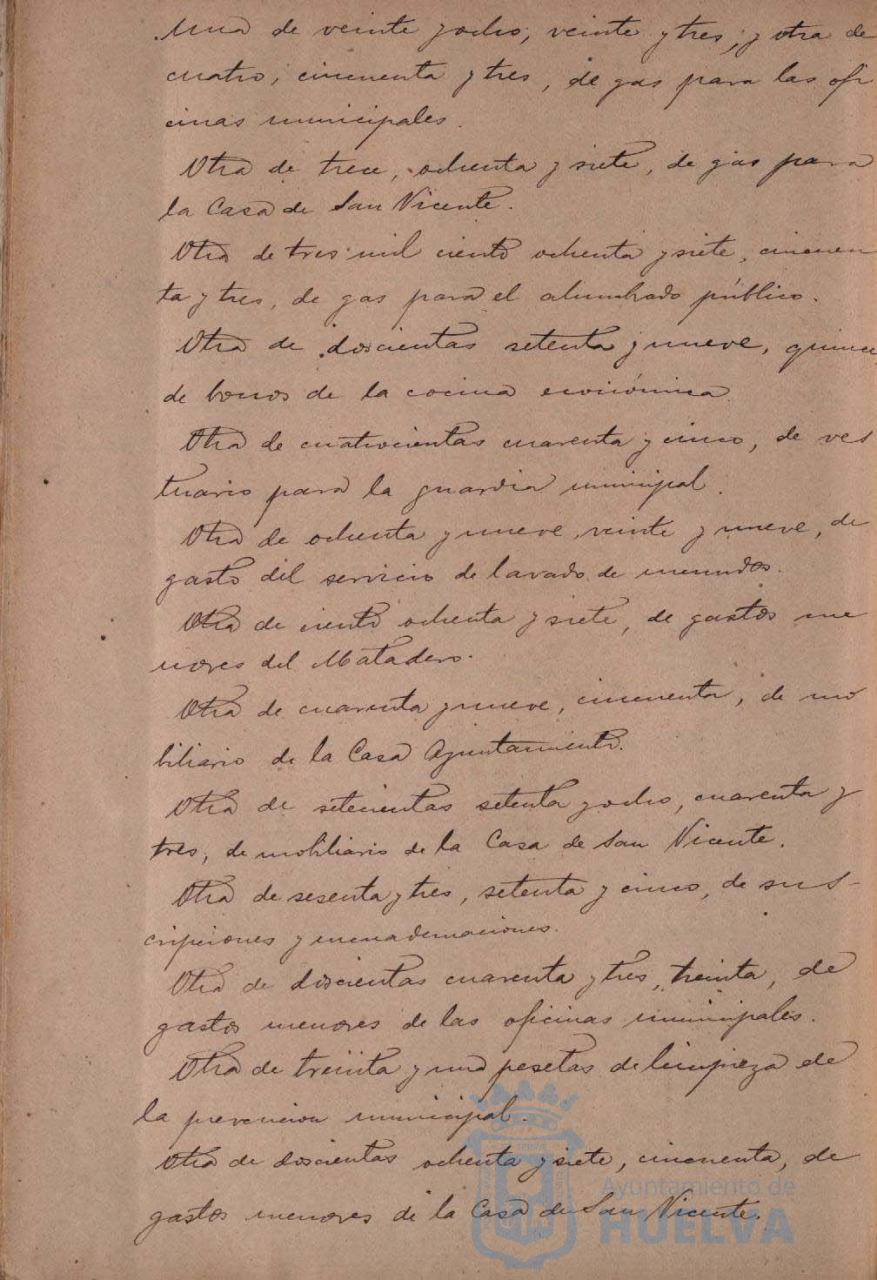 Una de veinte y ocho, veinte y tres, y otra de
cuatro, cincuenta y tres, de gas para las ofi
cinas municipales.
Otra de trece, ochenta y siete, de gas para
la Casa de San Vicente.
Otra de tres mil ciento ochenta y siete, cincuen
ta y tres, de gas para el alumbrado público.
Otra de doscientas setenta y nueve, quince
de bonos de la cocina económica
Otra de cuatrocientas cuarenta y cinco, de ves
tuario para la guardia municipal.
Otra de ochenta y nueve, veinte y nueve, de
gasto del servicio de lavado de menudos.
Otra de ciento ochenta y siete, de gastos me
nores del Matadero.
Otra de cuarenta y nueve, cincuenta, de mo
biliario de la Casa Ayuntamiento.
Otra de setecientas setenta y ocho, cuarenta y
tres, de mobiliario de la Casa de San Vicente.
Otra de sesenta y tres, setenta y cinco, de sus-
cripciones y encuadernaciones.
Otra de doscientas cuarenta y tres, treinta, de
gastos menores de las oficinas municipales.
Otra de treinta y una pesetas de limpieza de
la prevencion municipal.
Otra de doscientas ochenta y siete, cincuenta, de
gastos menores de la Casa de San Vicente.
Ayuntamiento de
HUELVA